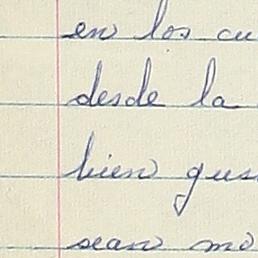 en los cu
desde la
bien gus
sean mo